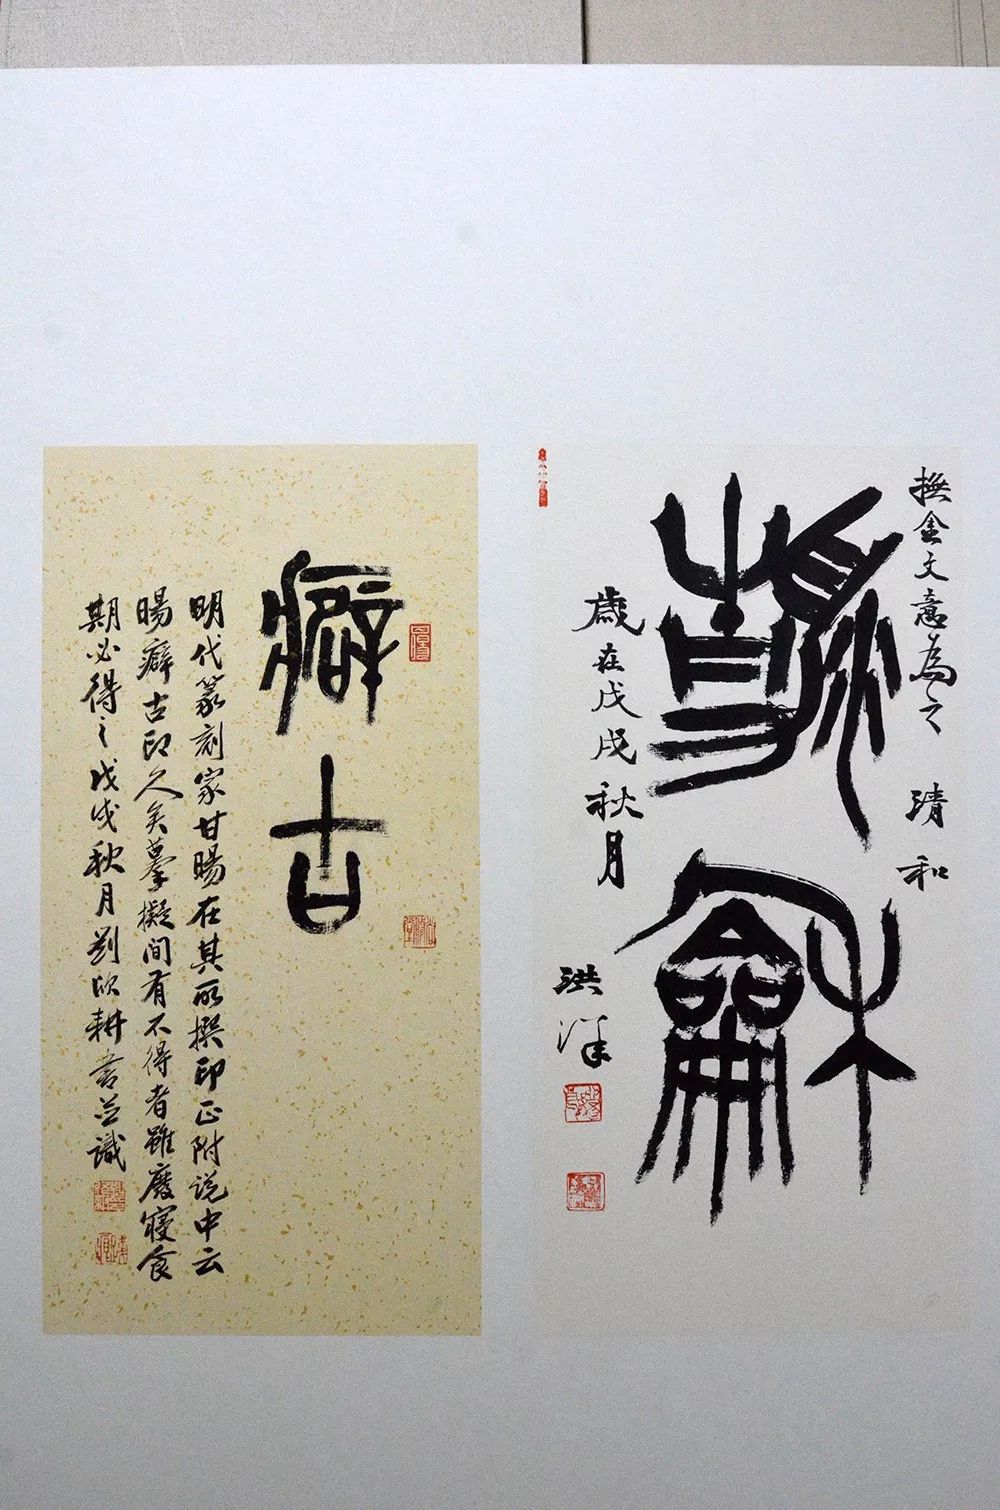 撫金文意為之
清和
歲在戊戌秋月
洪洋
癖古
明代篆刻家甘暘在其所撰印正附说中云
暘癖古印久矣摹擬间有不得者雖廢寢食
期必得之戊戌秋月劉欣耕書並識